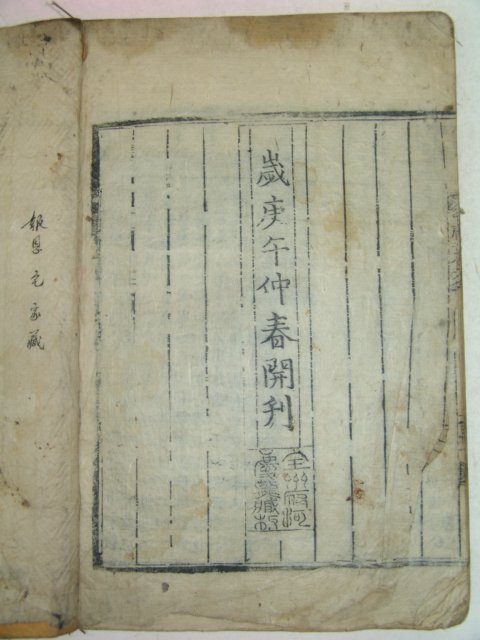 歲庚午仲春開刋
全州府河
慶龍藏板
報恩宅家藏